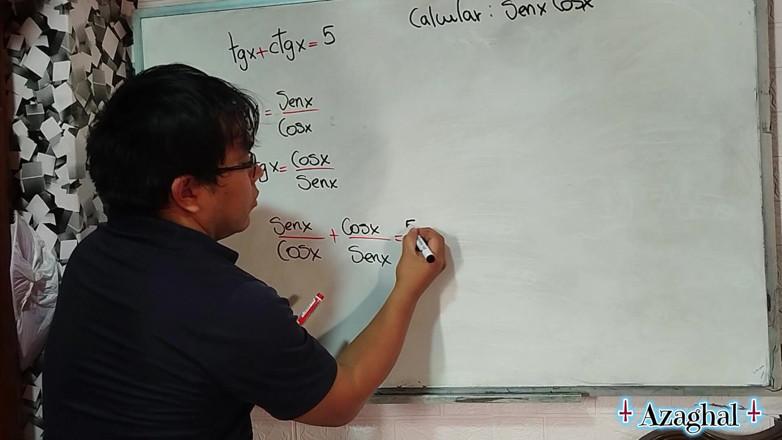 Calcular: Senx Cosx
tgx+ctgx=5
= Senx/Cosx
gx= Cosx/Senx
Senx/Cosx + Cosx/Senx = 5
Azaghal